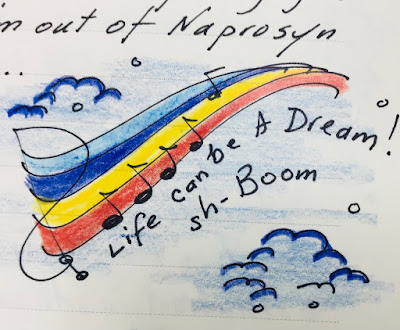 m out of Naprosyn
...
Life can be A Dream!
sh-Boom